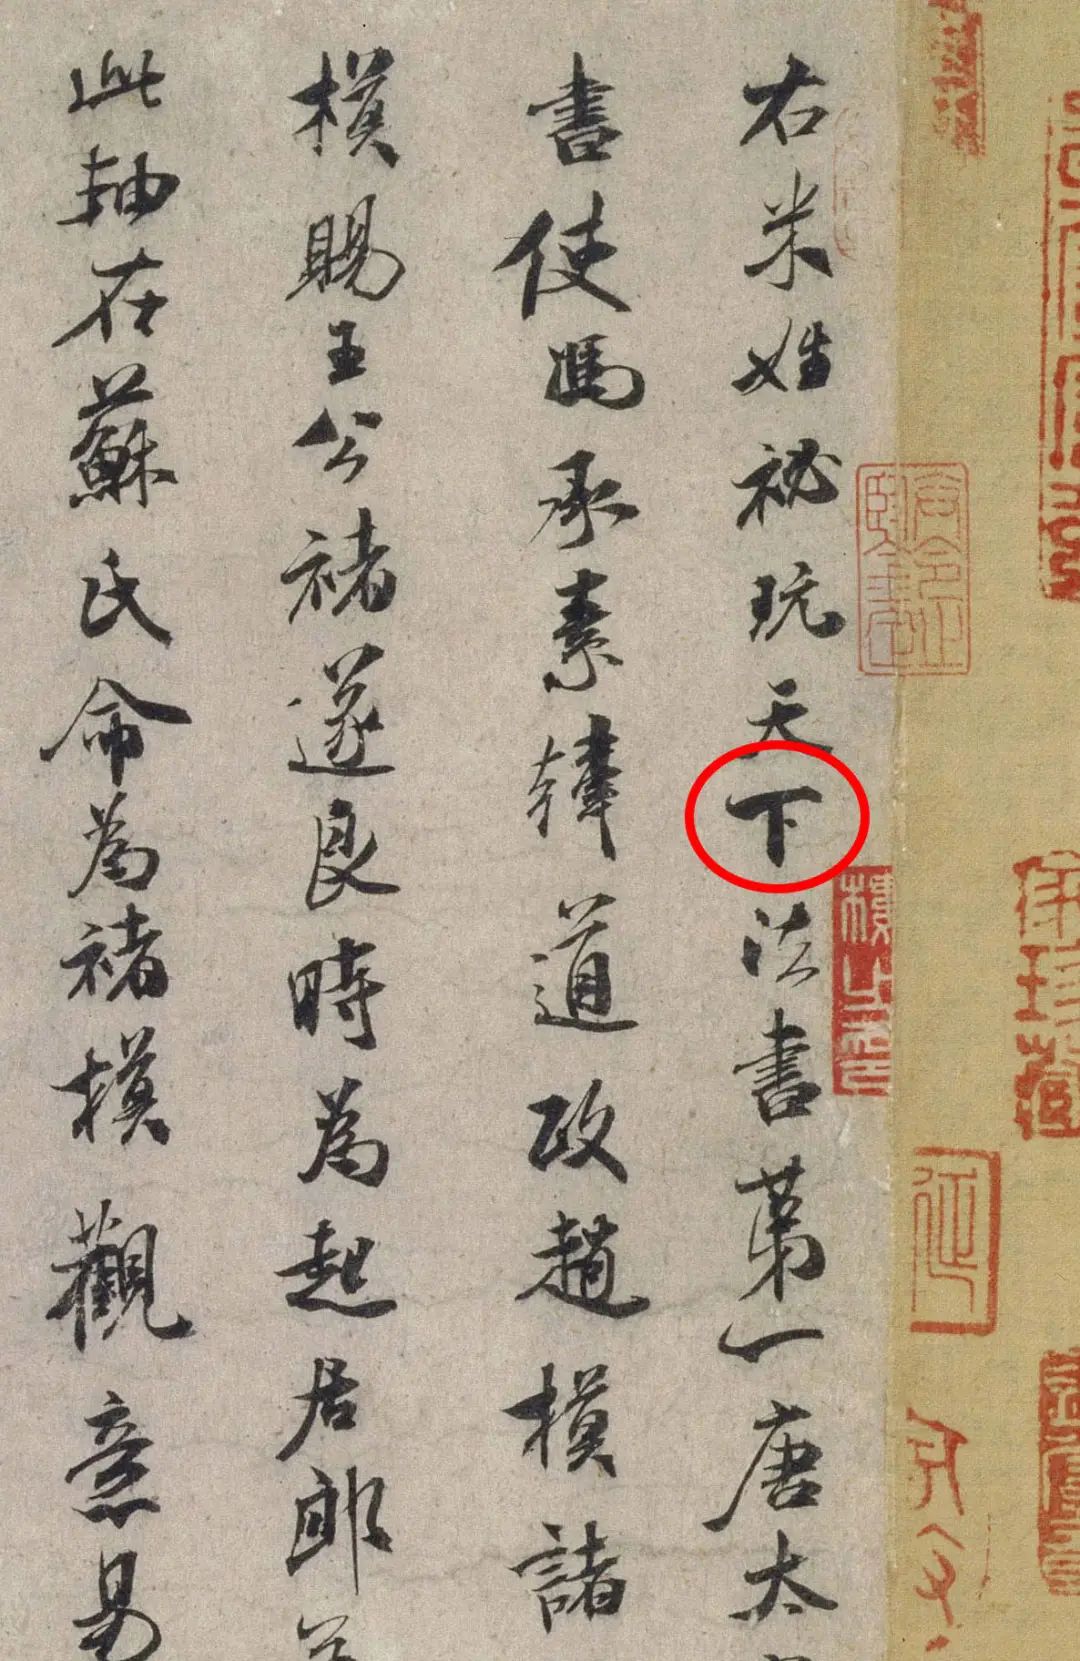 右米姓祕玩天下法書第一唐太
書使馮承素韓道政趙模諸
模賜王公褚遂良時為起居郎
此軸在蘇氏命為褚模觀意易